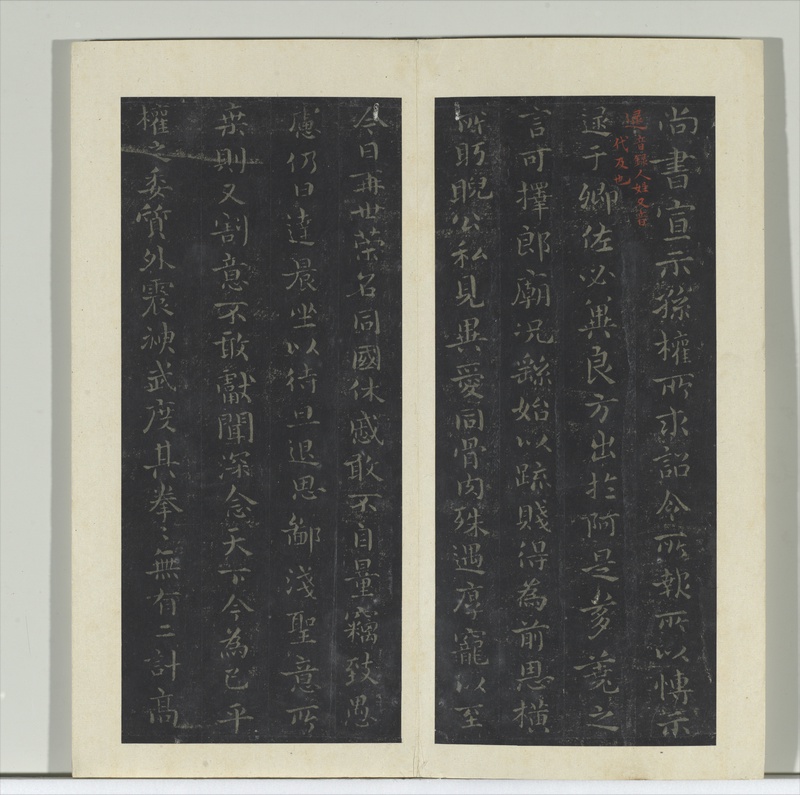 尚書宣示孫權所求詔令所報所以博示
逯音錄人姓又音
代及也
逮于卿佐必冀良方出於阿是芻蕘之
言可擇郎廟況繇始以疏賤得為前恩橫
所眄睨公私見異愛同骨肉殊遇厚寵以至
今日再世榮名同國休慼敢不自量竊致愚
慮仍日達晨坐以待旦退思鄙淺聖意所
棄則又割意不敢獻聞深念天下今為已平
權之委質外震神武度其拳〻無有二計高